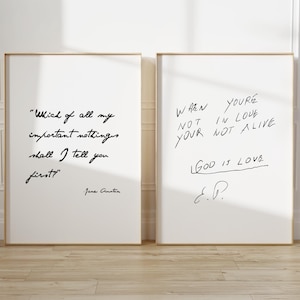 "Which of all my
important nothings
shall I tell you
first?"
Jane Austen
WHEN YOU'RE
NOT IN LOVE
YOUR NOT ALIVE
GOD IS LOVE
E.P.